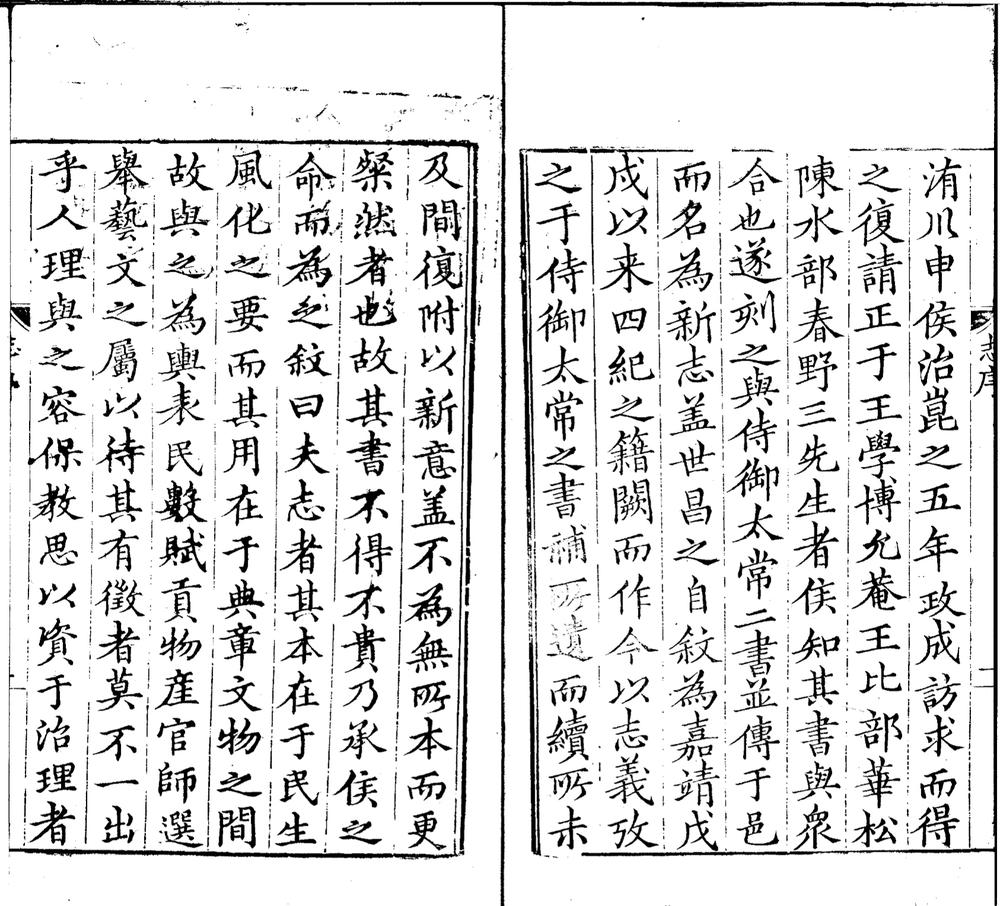 志序
洧川申侯治崑之五年政成訪求而得
之復請正于王學博允菴王比部華松
陳水部春野三先生者侯知其書與眾
合也遂刻之與侍御太常二書並傳于邑
而名為新志盖世昌之自敘為嘉靖戊
戍以来四紀之籍闕而作今以志義攷
之于侍御太常之書補所遺而續所未
及間復附以新意盖不為無所本而更
粲然者也故其書不得不貴乃承侯之
命而為之敘曰夫志者其本在于民生
風化之要而其用在于典章文物之間
故與之為輿表民數賦貢物産官師選
舉藝文之屬以待其有徵者莫不一出
乎人理與之容保教思以資于治理者